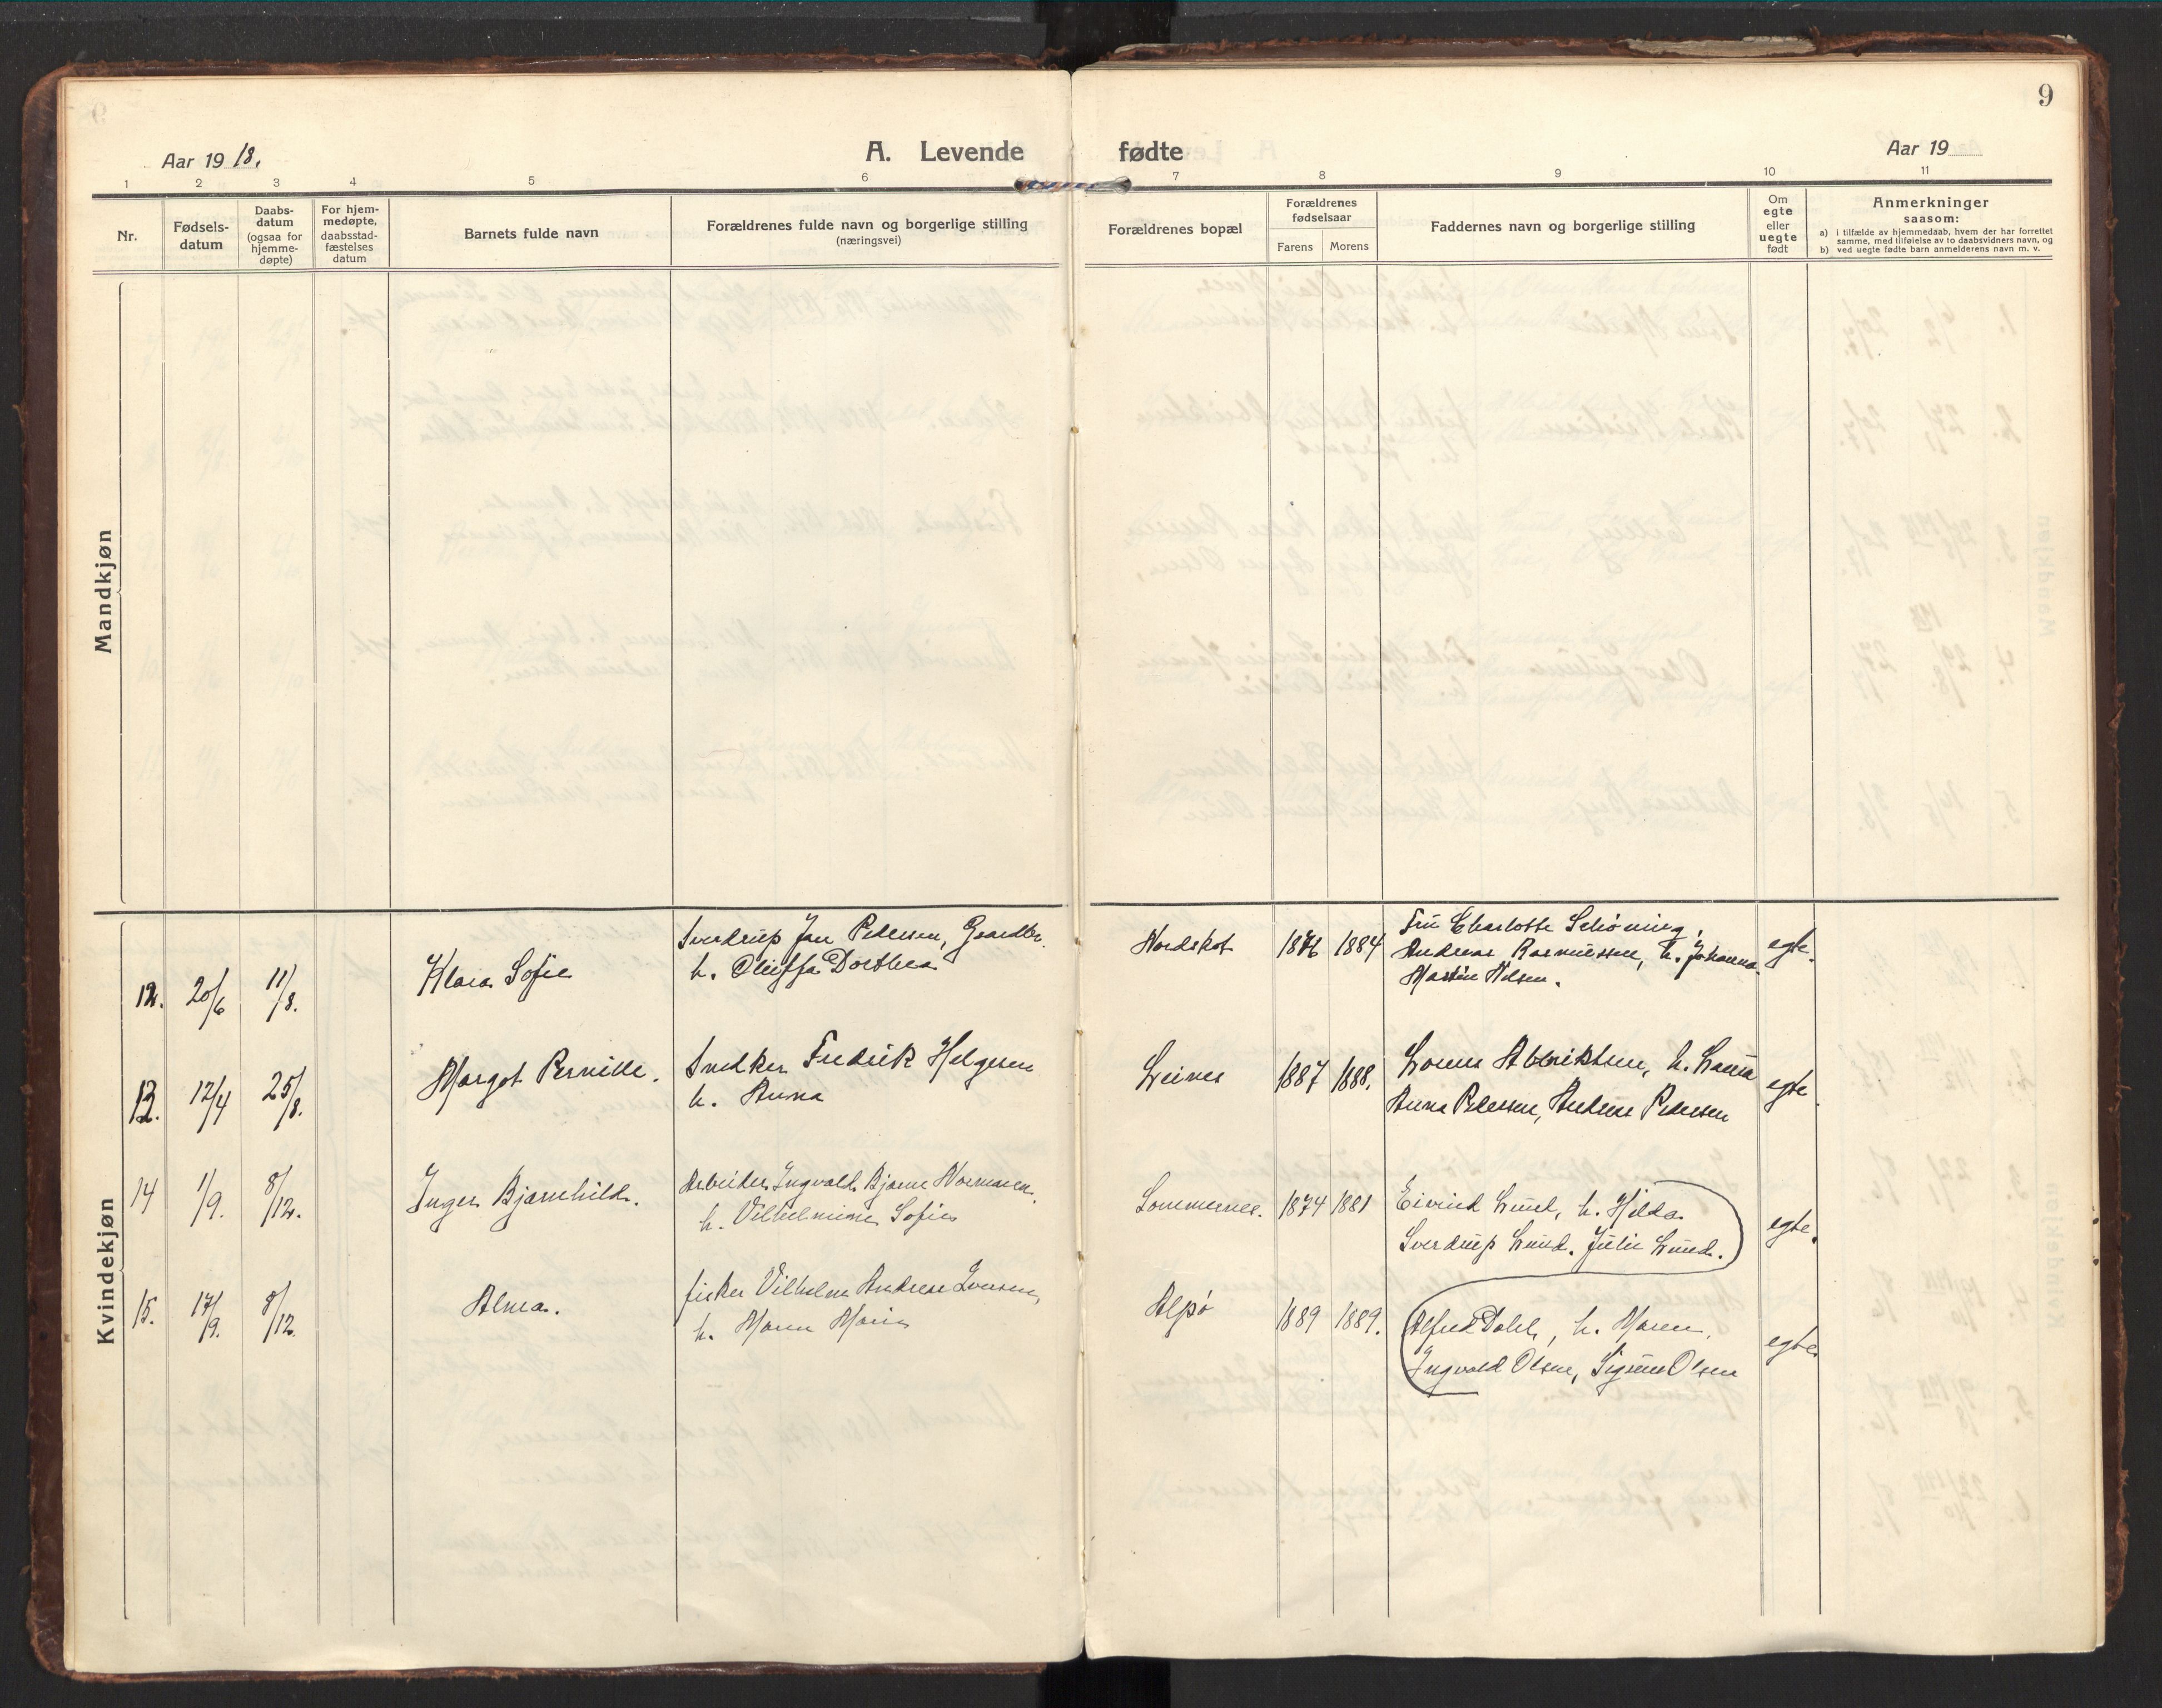 9
Aar 1918.
A. Levende fødte
Aar 19
1 2 3 4 5 6 7 8 9 10 11
Nr.
Fødsels-
datum
Daabs-
datum
(ogsaa for
hjemme-
døpte)
For hjem-
medøpte,
daabsstad-
fæstelses
datum
Barnets fulde navn
Forældrenes fulde navn og borgerlige stilling
(næringsvei)
Forældrenes bopæl
Forældrenes
fødselsaar
Farens Morens
Faddernes navn og borgerlige stilling
Om
egte
eller
uegte
født
Anmerkninger
saasom:
a) i tilfælde av hjemmedaab, hvem der har forrettet
samme, med tilføielse av to daabsvidners navn, og
b) ved uegte fødte barn anmelderens navn m. v.
Mandkjøn
Kvindekjøn
12. 20/6 11/8. Klara Sofie
Sverdrup Jan Pedersen, Gaardbr.
h. Oluffa Dorthea
Nordskot 1876 1884
Fru Charlotte Schøning,
Andreas Rasmussen, h. Johanna
Martin Nilsen.
egte.
13. 12/4 25/8. Margot Pernille.
Snedker Fredrik Helgesen
h. Anna
Leines 1887 1888.
Lorens Albriktsen, h. Laura
Anna Pedersen, Andreas Pedersen
egte.
14 1/9. 8/12. Inger Bjarnhild.
Arbeider Ingvald Bjarne Normann.
h. Vilhelmine Sofie
Sommernes. 1874 1881
Eivind Lund, h. Hilda
Sverdrup Lund. Julie Lund.
egte.
15. 17/9. 8/12. Alma.
fisker Vilhelm Andreas Iversen,
h. Maren Marie
Alpø 1889 1889.
Alfred Dahl, h. Maren,
Ingvald Olsen, Sigrun Olsen
egte.